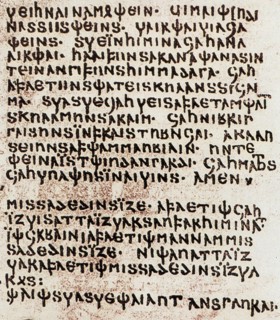 𐍅𐌴𐌹𐌷𐌽𐌰𐌹𐌽𐌰𐌼𐍉𐌸𐌴𐌹𐌽· 𐌵𐌹𐌼𐌰𐌹𐌸𐌹𐌿𐌳𐌹
𐌽𐌰𐍃𐍃𐌿𐍃𐌸𐌴𐌹𐌽𐍃· 𐍅𐌰𐌹𐍂𐌸𐌰𐌹𐍅𐌹𐌻𐌾𐌰
𐌸𐌴𐌹𐌽𐍃· 𐍃𐍅𐌴𐌹𐌽𐌷𐌹𐌼𐌹𐌽𐌰𐌾𐌰𐌷𐌰𐌽𐌰
𐌰𐌹𐍂𐌸𐌰𐌹· 𐌷𐌻𐌰𐌹𐍆𐌿𐌽𐍃𐌰𐍂𐌰𐌽𐌰𐌸𐌰𐌽𐌰𐍃𐌹𐌽
𐍄𐌴𐌹𐌽𐌰𐌽𐌲𐌹𐍆𐌿𐌽𐍃𐌷𐌹𐌼𐌼𐌰𐌳𐌰𐌲𐌰· 𐌾𐌰𐌷
𐌰𐍆𐌻𐌴𐍄𐌿𐌽𐍃𐌸𐌰𐍄𐌴𐌹𐍃𐌺𐌿𐌻𐌰𐌽𐍃𐍃𐌹𐌾𐌰𐌹
𐌼𐌰· 𐍃𐍅𐌰𐍃𐍅𐌴𐌾𐌰𐌷𐍅𐌴𐌹𐍃𐌰𐍆𐌻𐌴𐍄𐌰𐌼𐌸𐌰𐌹𐌼
𐍃𐌺𐌿𐌻𐌰𐌼𐌿𐌽𐍃𐌰𐍂𐌰𐌹𐌼· 𐌾𐌰𐌷𐌽𐌹𐌱𐍂𐌹𐌲
𐌲𐌰𐌹𐍃𐌿𐌽𐍃𐌹𐌽𐍆𐍂𐌰𐌹𐍃𐍄𐌿𐌱𐌽𐌾𐌰𐌹· 𐌰𐌺𐌻𐌰𐌿
𐍃𐌴𐌹𐌿𐌽𐍃𐌰𐍆𐌸𐌰𐌼𐌼𐌰𐌿𐌱𐌹𐌻𐌹𐌽· 𐌿𐌽𐍄𐌴
𐌸𐌴𐌹𐌽𐌰𐌹𐍃𐍄𐌸𐌹𐌿𐌳𐌰𐌽𐌲𐌰𐍂𐌳𐌹· 𐌾𐌰𐌷𐌼𐌰𐌷𐍄𐍃
𐌾𐌰𐌷𐍅𐌿𐌻𐌸𐌿𐍃𐌹𐌽𐌰𐌹𐍅𐌹𐌽𐍃· 𐌰𐌼𐌴𐌽
𐌼𐌹𐍃𐍃𐌰𐌳𐌴𐌳𐌹𐌽𐍃𐌹𐌶𐌴· 𐌰𐍆𐌻𐌴𐍄𐌹𐌸𐌾𐌰𐌷
𐌹𐌶𐍅𐌹𐍃𐌰𐍄𐍄𐌰𐌹𐌶𐍅𐌰𐍂𐍃𐌰𐌿𐍆𐌰𐍂𐌷𐌹𐌼𐌹𐌽𐌰𐌼
𐌹𐌸𐌾𐌰𐌱𐌰𐌹𐌽𐌹𐌰𐍆𐌻𐌴𐍄𐌹𐌸𐌼𐌰𐌽𐌽𐌰𐌼𐌼𐌹𐍃
𐍃𐌰𐌳𐌴𐌳𐌹𐌽𐍃𐌹𐌶𐌴· 𐌽𐌹𐌸𐌰𐌿𐌰𐍄𐍄𐌰𐌹𐌶
𐍅𐌰𐍂𐌰𐍆𐌻𐌴𐍄𐌹𐌸𐌼𐌹𐍃𐍃𐌰𐌳𐌴𐌳𐌹𐌽𐍃𐌹𐌶𐍅𐌰
𐍂𐍉𐍃: